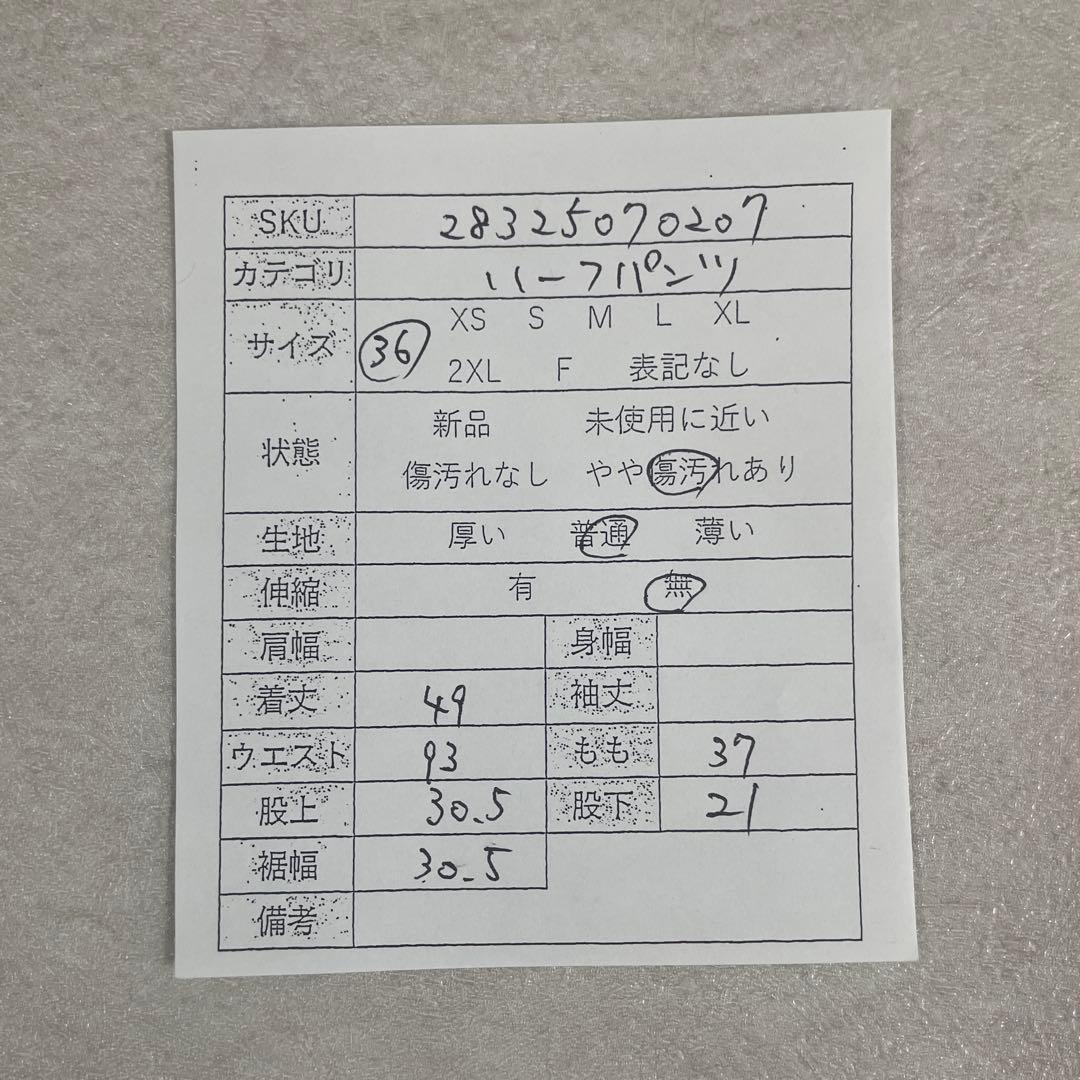 SKU 28325070207
カテゴリ ハーフパンツ
サイズ 36 XS S M L XL
2XL F 表記なし
状態 新品 未使用に近い
傷汚れなし やや傷汚れあり
生地 厚い 普通 薄い
伸縮 有 無
肩幅 身幅
着丈 49 袖丈
ウエスト 93 もも 37
股上 30.5 股下 21
裾幅 30.5
備考